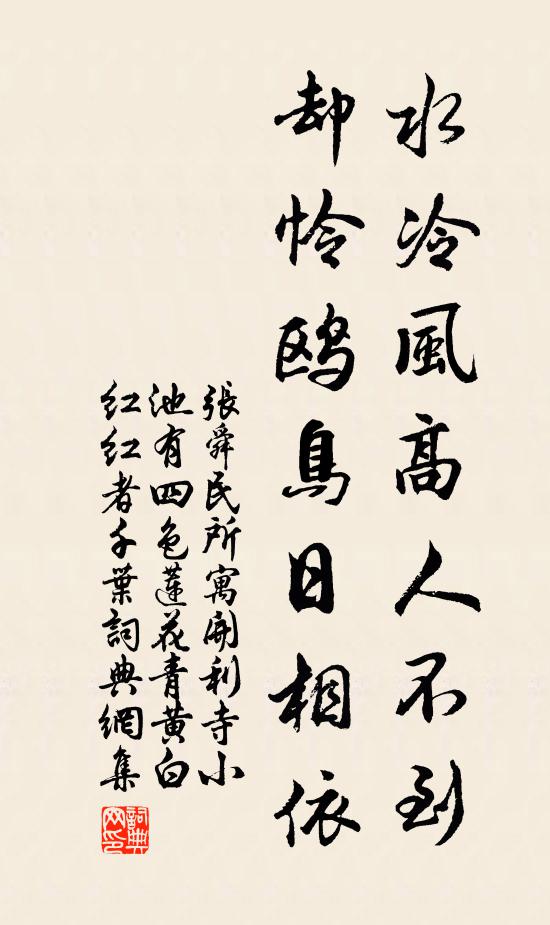 水冷風高人不到
却怜鸥鳥日相依
張舜民所寓開利寺小
池有四色蓮花青黄白
红红者千葉詞典網集
詞典
网印